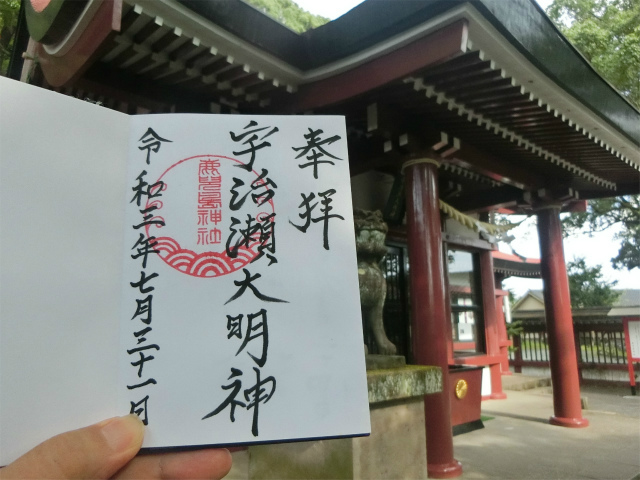 奉拝
宇治瀬大明神
鹿児島神社
令和三年七月三十一日